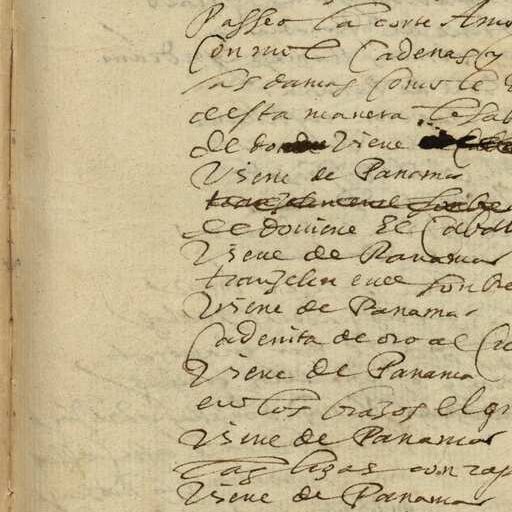 Passeo la corte Amo
Con mil Cadenas y
las damas como le
desta manera le sal
de donde Viene
Viene de Panama
de do viene El Cabal
Viene de Panama
tranzelin en el sonbre
Viene de Panama
Cadenita de oro al Cu
Viene de Panama
en los brazos el gr
Viene de Panama
Las ligas con rap
Viene de Panama